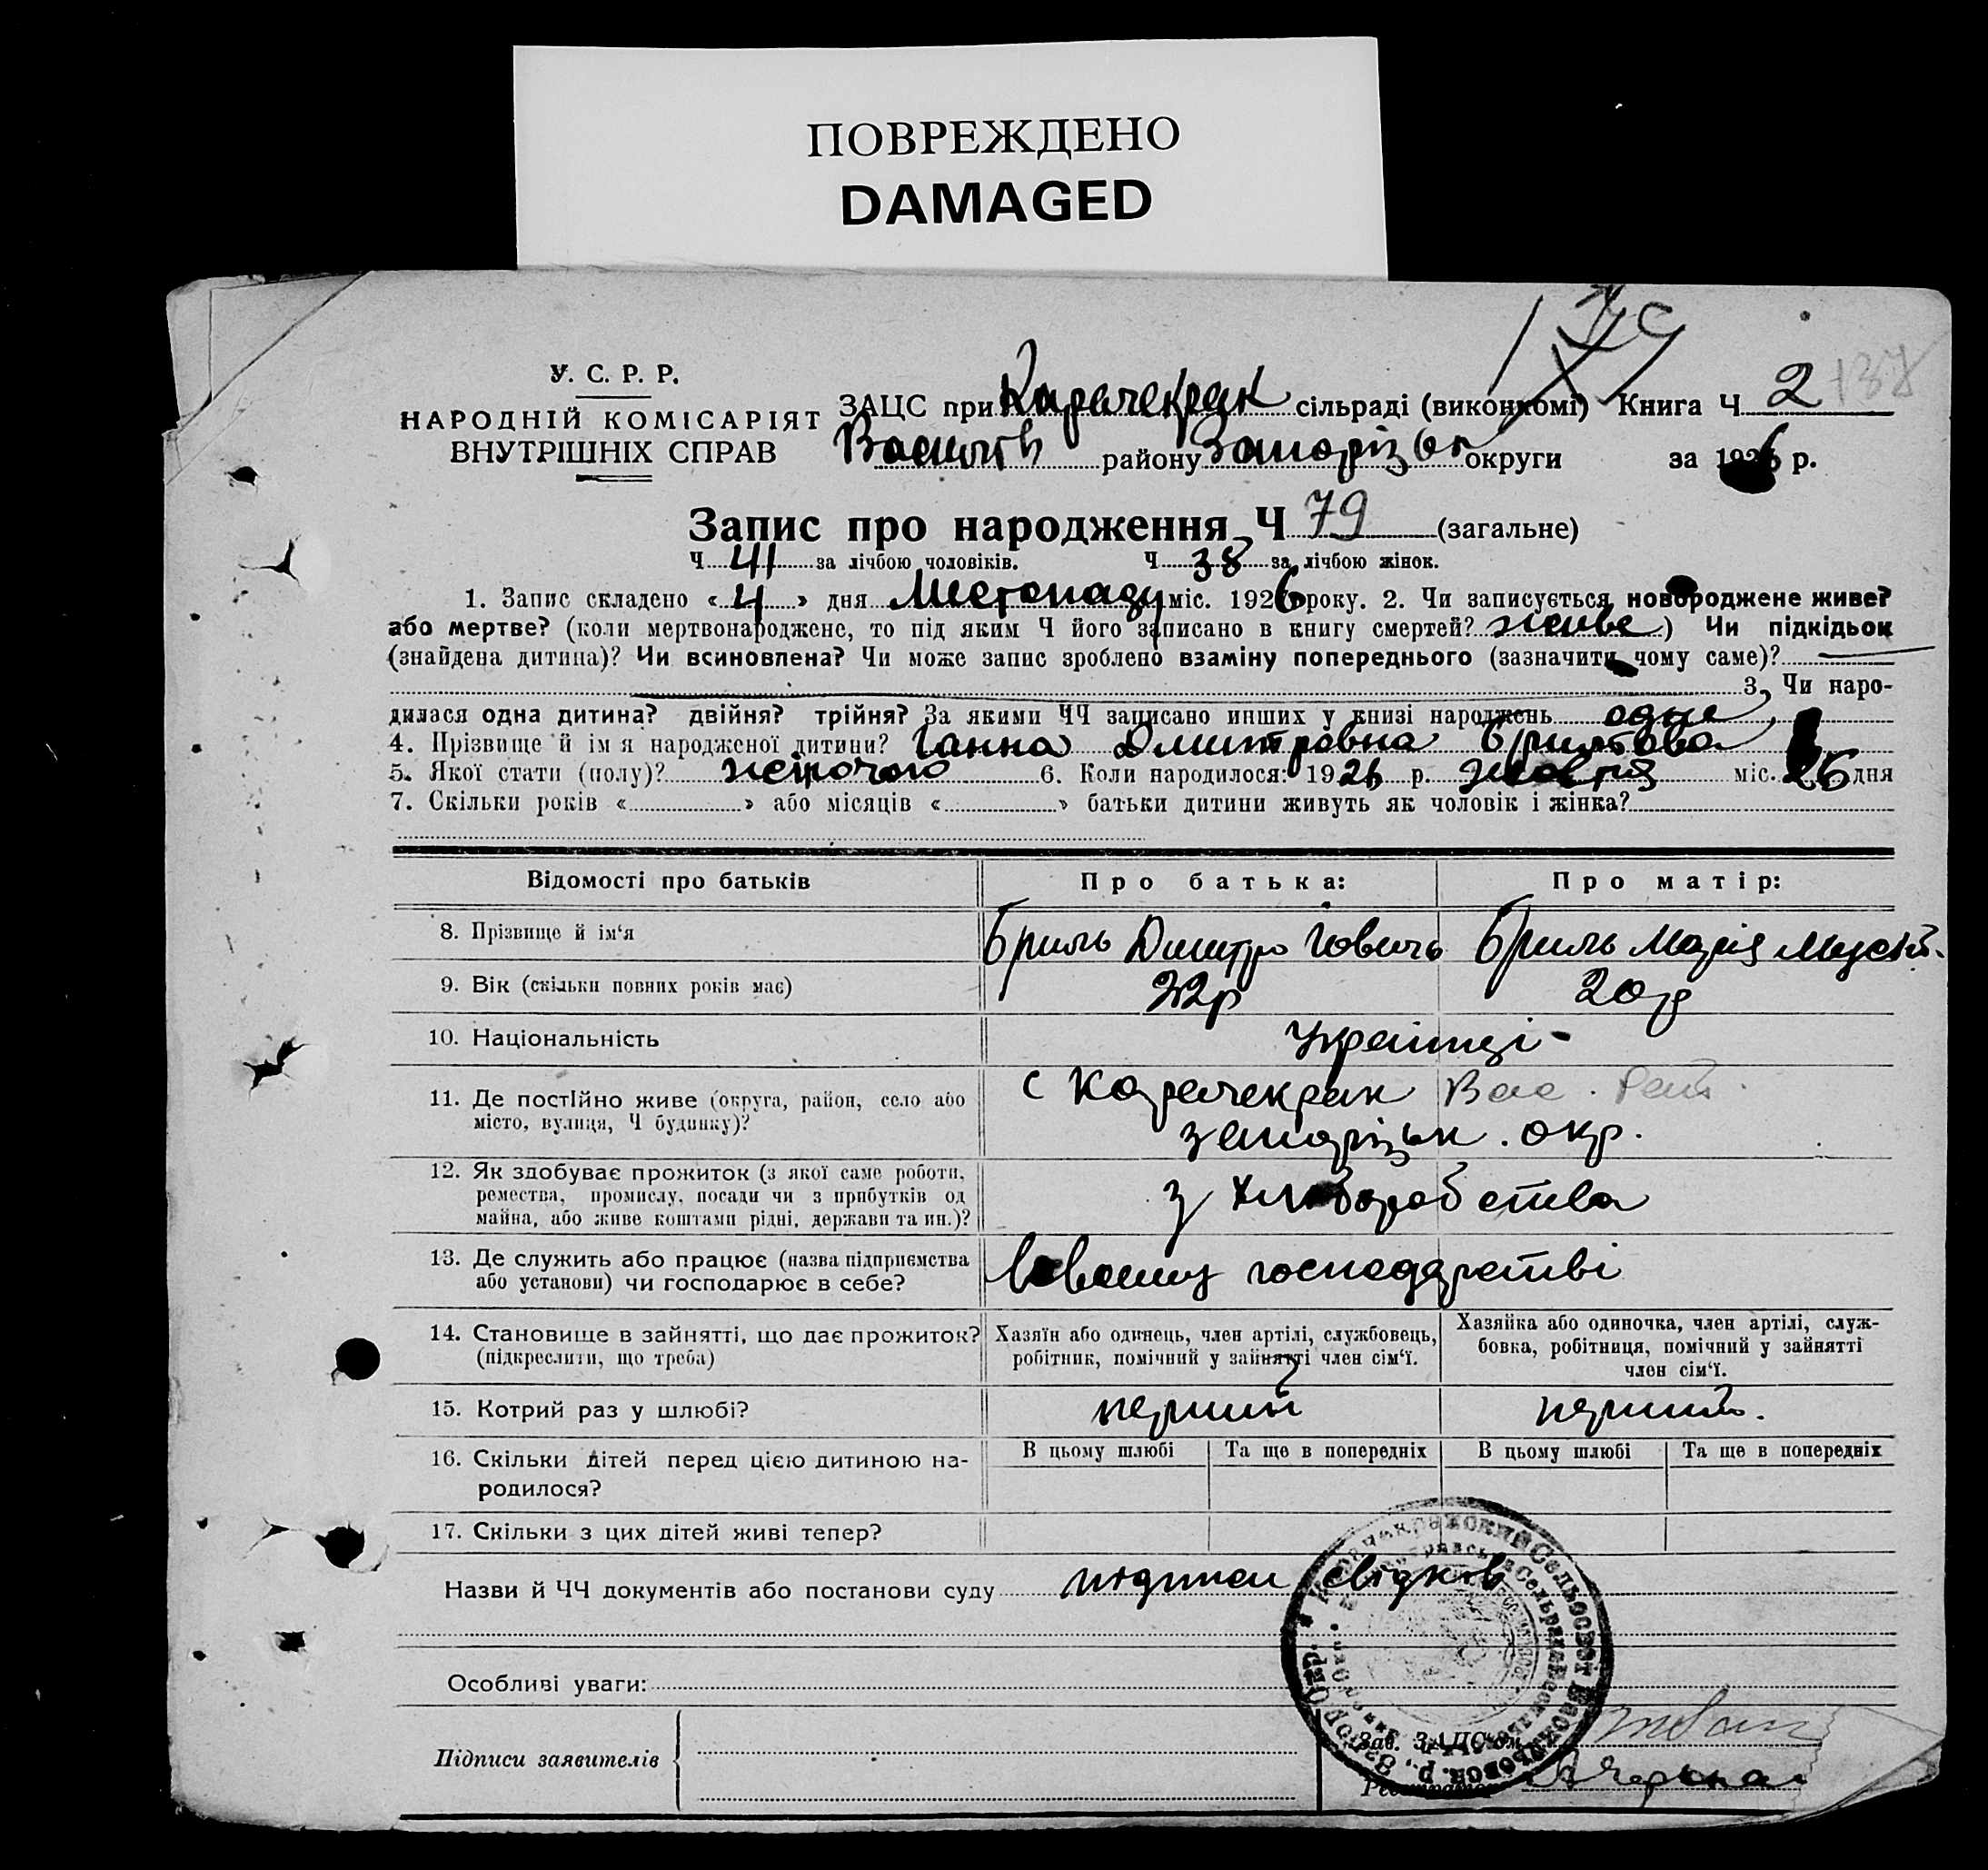 ПОВРЕЖДЕНО
DAMAGED
138
У. С. Р. Р.
НАРОДНІЙ КОМІСАРІЯТ
ВНУТРІШНІХ СПРАВ
ЗАЦС при Карачекрак сільраді (виконкомі) Книга Ч 2
району Запорізьк округи за 1926 р.
Запис про народження Ч 79 (загальне)
Ч 41 за лічбою чоловіків. Ч 38 за лічбою жінок.
1. Запис складено «4» дня Листопаду міс. 1926 року. 2. Чи записується новороджене живе?
або мертве? (коли мертвонароджене, то під яким Ч його записано в книгу смертей? живе) Чи підкідьок
(знайдена дитина)? Чи всиновлена? Чи може запис зроблено взаміну попереднього (зазначити чому саме)?
3. Чи наро-
дилася одна дитина? двійня? трійня? За якими ЧЧ записано инших у книзі народжень одне
4. Прізвище й ім я народженої дитини? Ганна Дмитровна
5. Якої стати (полу)? жіночого 6. Коли народилося: 1926 р. жовтня міс. 26 дня
7. Скільки років «» або місяців «» батьки дитини живуть як чоловік і жінка?
Відомості про батьків Про батька: Про матір:
8. Прізвище й ім‘я Бриль Дмитро Іович Бриль Марія Мусій.
9. Вік (скільки повних років має) 22р 20р
10. Національність Українці
11. Де постійно живе (округа, район, село або с Карачекрак Вас. Рай.
місто, вулиця, Ч будинку)? запорізьк. окр.
12. Як здобуває прожиток (з якої саме роботи,
ремества, промислу, посади чи з прибутків од з хліборобства
майна, або живе коштами рідні, держави та ин.)?
13. Де служить або працює (назва підприємства
або установи) чи господарює в себе? господарстві
14. Становище в зайнятті, що дає прожиток? Хазяїн або одинець, член артілі, службовець, Хазяйка або одиночка, член артілі, служ-
(підкреслити, що треба) робітник, помічний у зайнятті член сім‘ї. бовка, робітниця, помічний у зайнятті
член сім‘ї.
15. Котрий раз у шлюбі? перший перший.
16. Скільки дітей перед цією дитиною на- В цьому шлюбі Та ще в попередніх В цьому шлюбі Та ще в попередніх
родилося?
17. Скільки з цих дітей живі тепер?
Назви й ЧЧ документів або постанови суду підписи свідків
Особливі уваги:
Підписи заявителів
Зав. ЗАЦС'ом